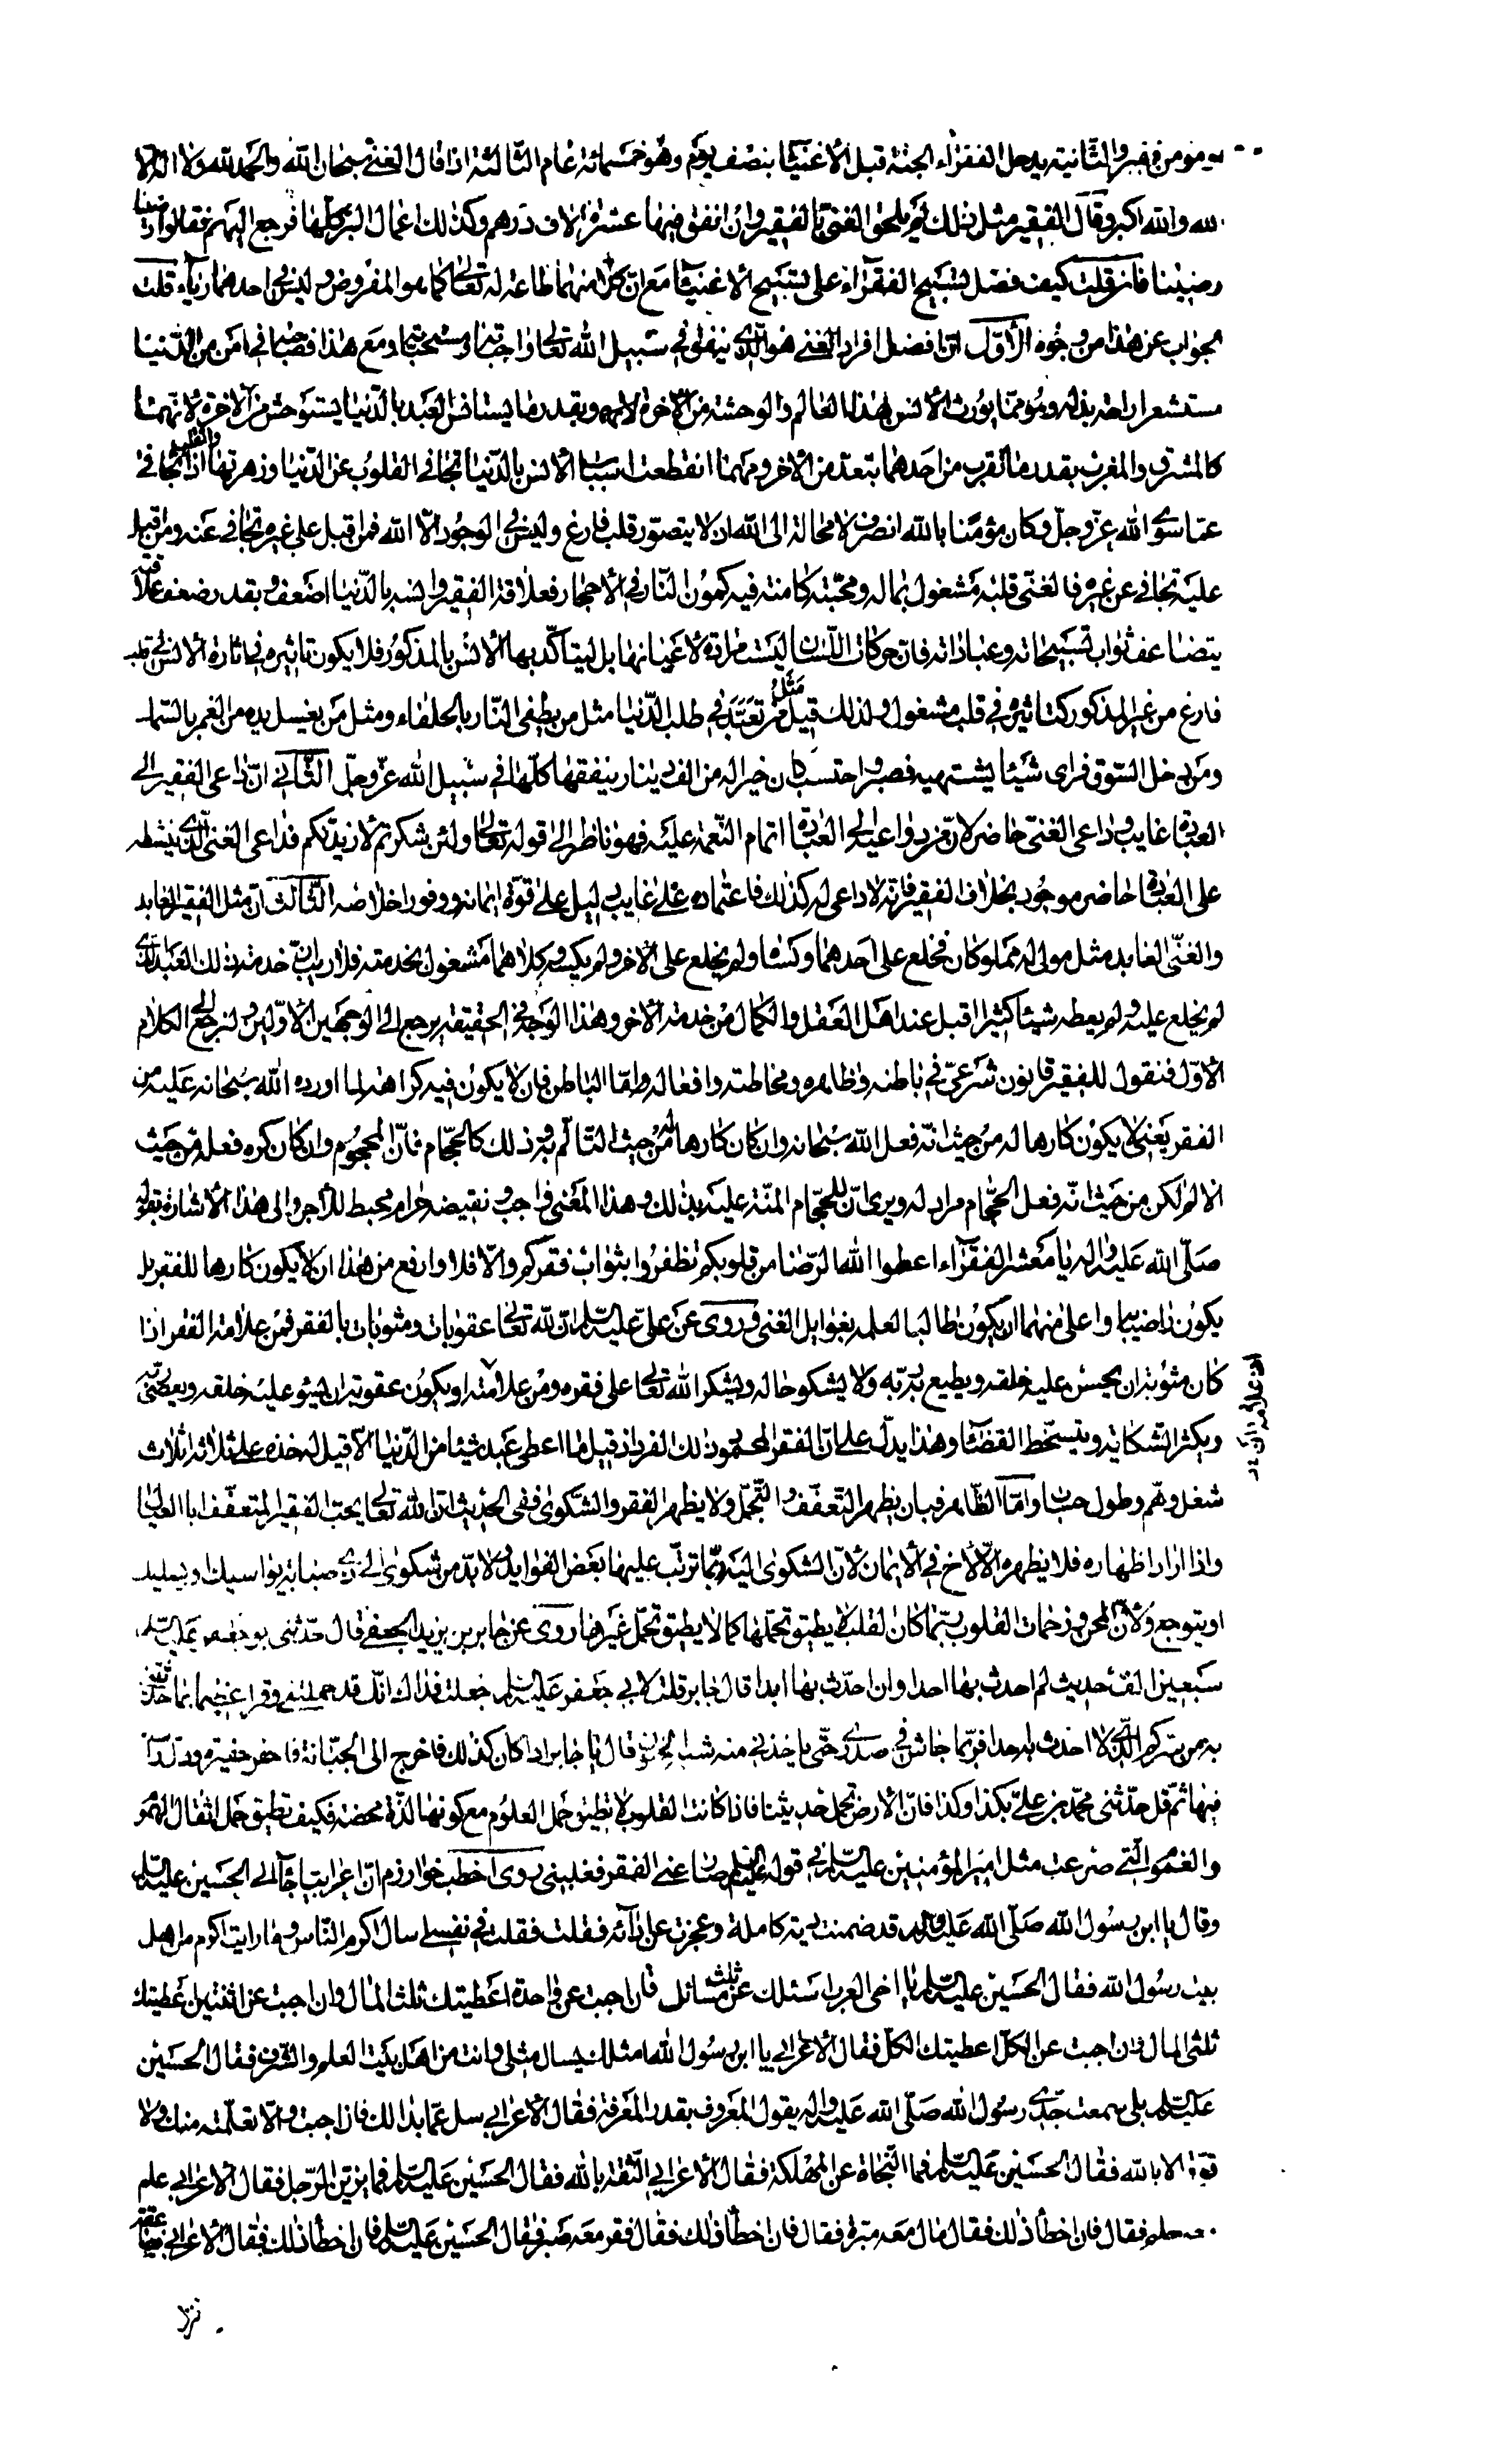 مؤمن فقير والثانية يدخل الفقراء الجنة قبل الأغنياء بنصف يوم وهو خمسمائة عام الثالثة اذا قال الغنى سبحان الله والحمد لله ولا اله الا
الله والله اكبر وقال الفقير مثل ذلك لم يلحق الغنى بالفقير وان انفق فيها عشرة الاف درهم وكذلك اعمال البر كلها فرجع اليهم فقالوا رضينا
رضينا فان قلت كيف فضل تسبيح الفقراء على تسبيح الاغنياء مع ان كلا منهما طاعة له تعالى كما هو المفروض وليس فى احدهما رياء قلت
الجواب عن هذا من وجوه الأول ان افضل افراد الغنى هو الذى ينفق فى سبيل الله تعالى واجبا ومستحبا ومع هذا فصاحبها فى امن من الدنيا
مستشعر راحة بذله وهو مما يورث الأنس بهذا العالم والوحشة من الاخرة وبقدر ما يستانس العبد بالدنيا يستوحش من الآخرة لأنهما
كالمشرق والمغرب بقدر ما تقرب من احدهما تبعد من الاخر ومهما انقطعت اسباب الأنس بالدنيا تجافى القلوب عن الدنيا وزهرتها والقلب اذا تجافى
عما سوى الله عز وجل وكان مؤمنا بالله انصرف لا محالة الى الله اذ لا يتصور قلب فارغ وليس فى الوجود الا الله فمن اقبل على غيره تجافى عنه ومن اقبل
عليه تجافى عن غيره فالغنى قلبه مشغول بماله ومحبته كامنة فيه كمون النار فى الأحجار فعلاقة الفقير وانسه بالدنيا اضعف وبقدر ضعف علاقته
يتضاعف ثواب تسبيحاته وعباداته فان حركات اللسان ليست مرادة لأعيانها بل ليتأكد بها الأنس بالمذكور فلا يكون تاثيره فى اثارة الأنس فى قلب
فارغ من غير المذكور كتاثيره فى قلب مشغول ولذلك قيل مثل من تعبد فى طلب الدنيا مثل من يطفى النار بالحلفاء ومثل من يغسل يده من الغمر بالسمك
ومن دخل السوق فراى شيئا يشتهيه فصبر واحتسب كان خيرا له من الف دينار ينفقها كلها فى سبيل الله عز وجل الثانى ان داعى الفقير الى
العبادة غايب وداعى الغنى حاضر لان من دواعيه الى العبادة اتمام النعمة عليه فهو ناظر الى قوله تعالى ولئن شكرتم لأزيدنكم فداعى الغنى الذى ينشطه
على العبادة حاضر موجود بخلاف الفقير فانه لا داعى له كذلك فاعتماده على غايب دليل على قوة ايمانه ووفور اخلاصه الثالث ان مثل الفقير العابد
والغنى العابد مثل مولى له مملوكان فخلع على احدهما وكساه ولم يخلع على الاخر ولم يكسه وكلاهما مشغول بخدمته فلا ريب ان خدمة ذلك العبد الذى
لم يخلع عليه ولم يعطه شيئا كثيرا اقبل عند اهل العقل والكمال من خدمة الأخر وهذا الوجه فى الحقيقة يرجع الى الوجهين الأولين ولنرجع الى الكلام
الأول فنقول للفقير قانون شرعى فى باطنه وظاهره ومخاطبته وافعاله واما الباطن فبان لا يكون فيه كراهة لما اورده الله سبحانه عليه من
الفقر يعنى لا يكون كارها له من حيث انه فعل الله سبحانه وان كان كارها له من حيث التألم به وذلك كالحجام فان المحجوم وان كان كره فعله من حيث
الالم لكن من حيث انه فعل الحجام مراد له ويرى ان للحجام المنة عليه بذلك وهذا المعنى واجب ونقيضه حرام محبط للأجر والى هذا الأشارة بقوله
صلى الله عليه واله يا معشر الفقراء اعطوا الله الرضا من قلوبكم تظفروا بثواب فقركم والا فلا وارفع من هذا ان لا يكون كارها للفقر بل
يكون راضيا به واعلى منهما ان يكون طالبا لعلمه بغوايل الغنى وروى عن على عليه السلم ان لله تعالى عقوبات ومثوبات بالفقر فمن علامة الفقر اذا
كان مثوبة ان يحسن عليه خلقه ويطيع به ربه ولا يشكو حاله ويشكر الله تعالى على فقره ومن علامته ويكون عقوبة ان يسوء عليه خلقه ويعصى ربه
ويكثر الشكاية ويتسخط القضاء وهذا يدل على ان الفقر المحمود ذلك الفرد اذ قيل ما اعطى عبد شيئا من الدنيا الا قيل له خذه على ثلاثة اثلاث
شغل وهم وطول حساب واما الظاهر فبان يظهر التعفف والتجمل ولا يظهر الفقر والشكوى ففى الحديث ان الله تعالى يحب الفقير المتعفف ابا العيال
واذا اراد اظهاره فلا يظهره الا لأخ فى الأيمان لأن الشكوى اليه ربما ترتب عليها بعض الفوايد ولا بد من شكوى الى ذى صبابة يواسيك او يسليك
او يتوجع ولأن المحن وزحمات القلوب ربما كان القلب لا يطيق تحملها كما لا يطيق تحمل غيرها روى عن جابر بن يزيد الجعفى قال حدثنى ابو جعفر عليه السلم
سبعين الف حديث لم احدث بها احدا ولن احدث بها ابدا قال جابر قلت لابى جعفر عليه السلم جعلت فداك انك قد حملتنى وقرا عظيما بما حدثتنى
به من سركم الذى لا احدث به احدا فربما جاش فى صدرى حتى ياخذنى منه شبه الجنون قال يا جابر اذا كان كذلك فاخرج الى الجبانة فاحفر حفيرة ودل راسك
فيها ثم قل حدثنى محمد بن على بكذا وكذا فان الأرض تحمل حديثنا فاذا كانت القلوب لا تطيق حمل العلوم مع كونها لذة محضة فكيف تطيق حمل اثقال الهموم
والغموم التى صرعت مثل امير المؤمنين عليه السلم فى قوله صارعنى الفقر فغلبنى روى اخطب خوارزم ان اعرابيا جاء الى الحسين عليه السلم
وقال يا ابن رسول الله صلى الله عليه واله قد ضمنت دية كاملة وعجزت عن ادآئه فقلت فقلت فى نفسى سال اكرم الناس وما رايت اكرم من اهل
بيت رسول الله فقال الحسين عليه السلم يا اخى العرب سئلك عن ثلث مسائل فان اجبت عن واحدة اعطيتك ثلث المال وان اجبت عن اثنتين اعطيتك
ثلثى المال وان اجبت عن الكل اعطيتك الكل فقال الأعرابى يا ابن رسول الله امثلك يسال مثلى وانت من اهل بيت العلم والشرف فقال الحسين
عليه السلم بلى سمعت جدى رسول الله صلى الله عليه واله يقول المعروف بقدر المعرفة فقال الأعرابى سل عما بدا لك فان اجبت والا تعلمته منك ولا
قوة الا بالله فقال الحسين عليه السلم فما النجاة عن المهلكة فقال الأعرابى الثقة بالله فقال الحسين عليه السلم فما يزين الرجل فقال الأعرابى علم
معه حلم فقال فان اخطأ ذلك فقال مال معه مروة فقال فان اخطأ ذلك فقال فقر معه صبر فقال الحسين عليه السلم فان اخطأ ذلك فقال الأعرابى